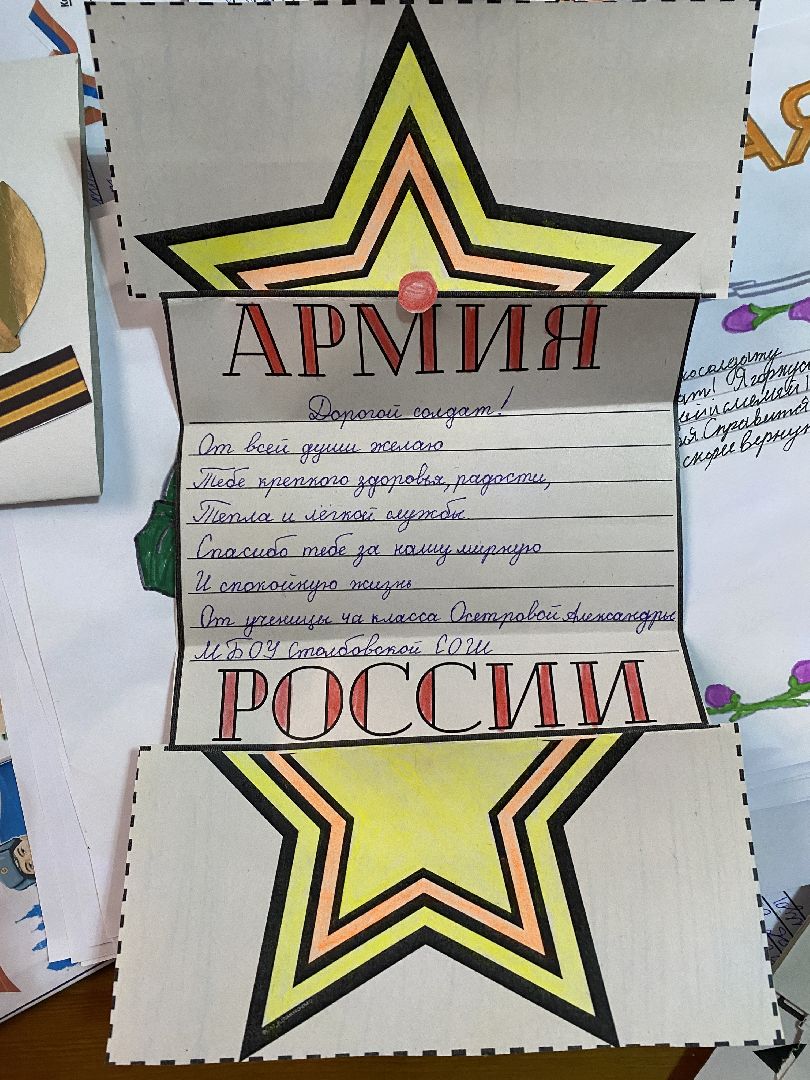 АРМИЯ
Дорогой солдат!
От всей души желаю
Тебе крепкого здоровья, радости,
Тепла и лёгкой службы.
Спасибо тебе за нашу мирную
И спокойную жизнь
От ученицы 4а класса Осетровой Александры
МБОУ Столбовской СОШ
РОССИИ
АЯ
солдату
Я горжусь
Справится
скорее вернут